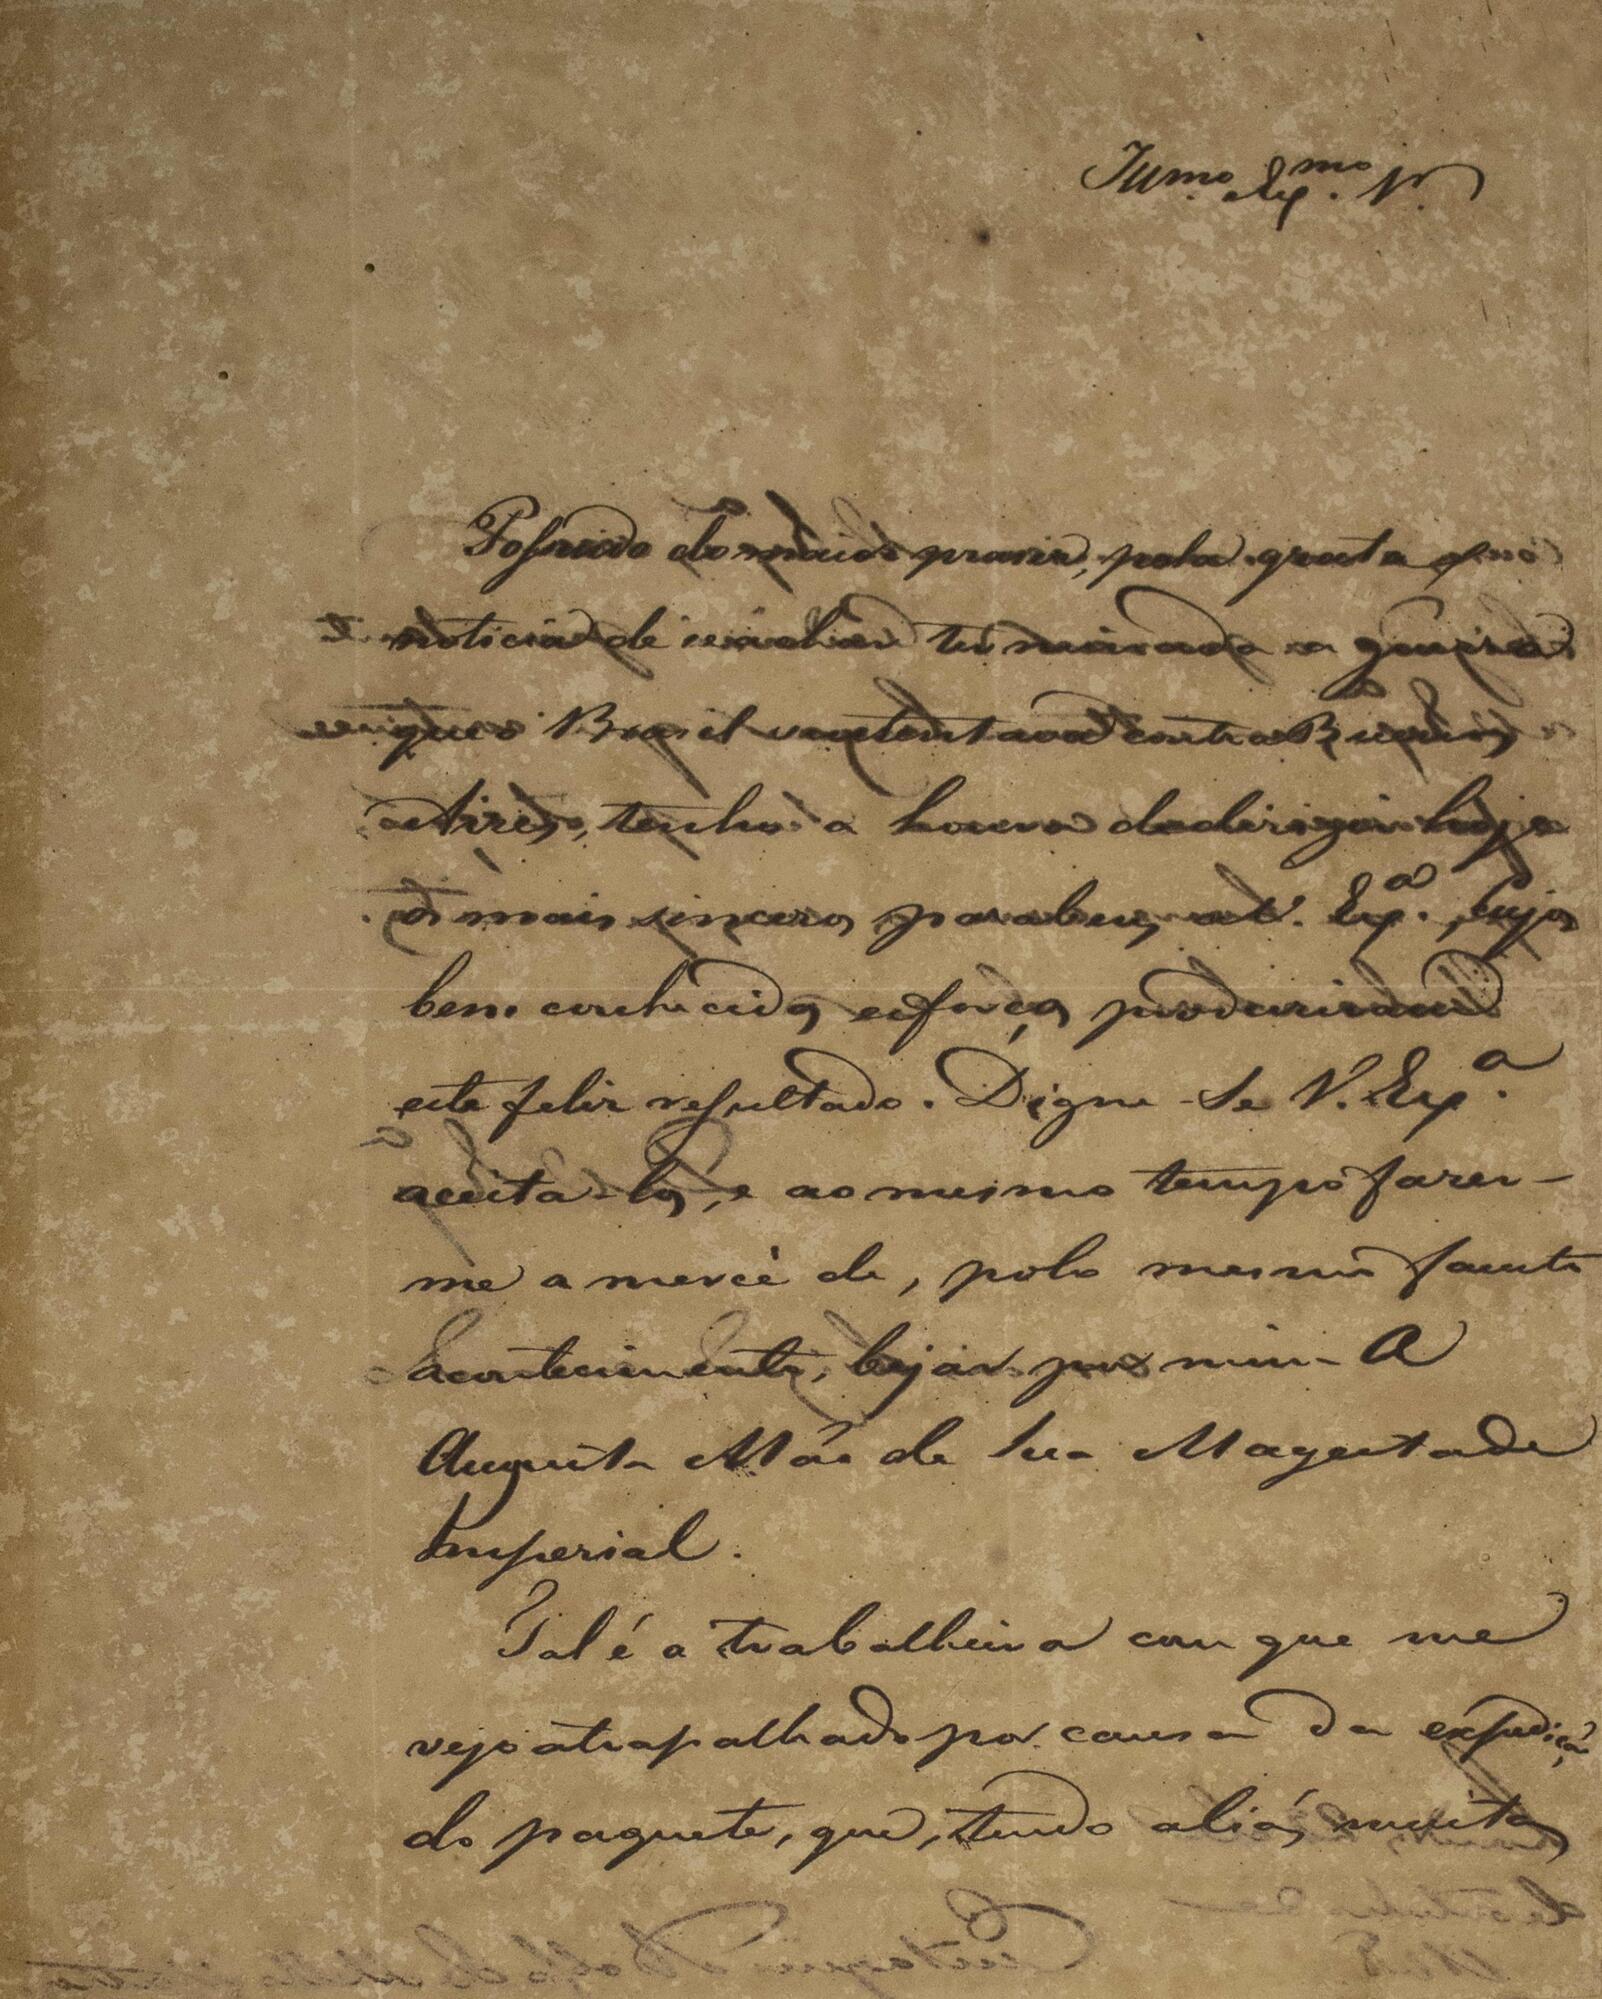 Illmo. Exmo. Sr.
Possuido do maior praser, pela grata
noticia de se achar terminada a guerra
que o Brasil sustentava contra Buenos
Aires, tenho a honra de dirigir hoje
os mais sinceros parabens a V. Exa., cujos
bem conhecidos esforços produziram
este feliz resultado. Digne-Se V. Exa.
aceita-los, e ao mesmo tempo fazer-
me a mercê de, pelo mesmo fausto
acontecimento, bejar por mim A
Augusta Mão de Sua Magestade
Imperial.
Tal é a trabalheira com que me
vejo atrapalhado por causa da expedição
do paquete, que, tendo aliás muitas